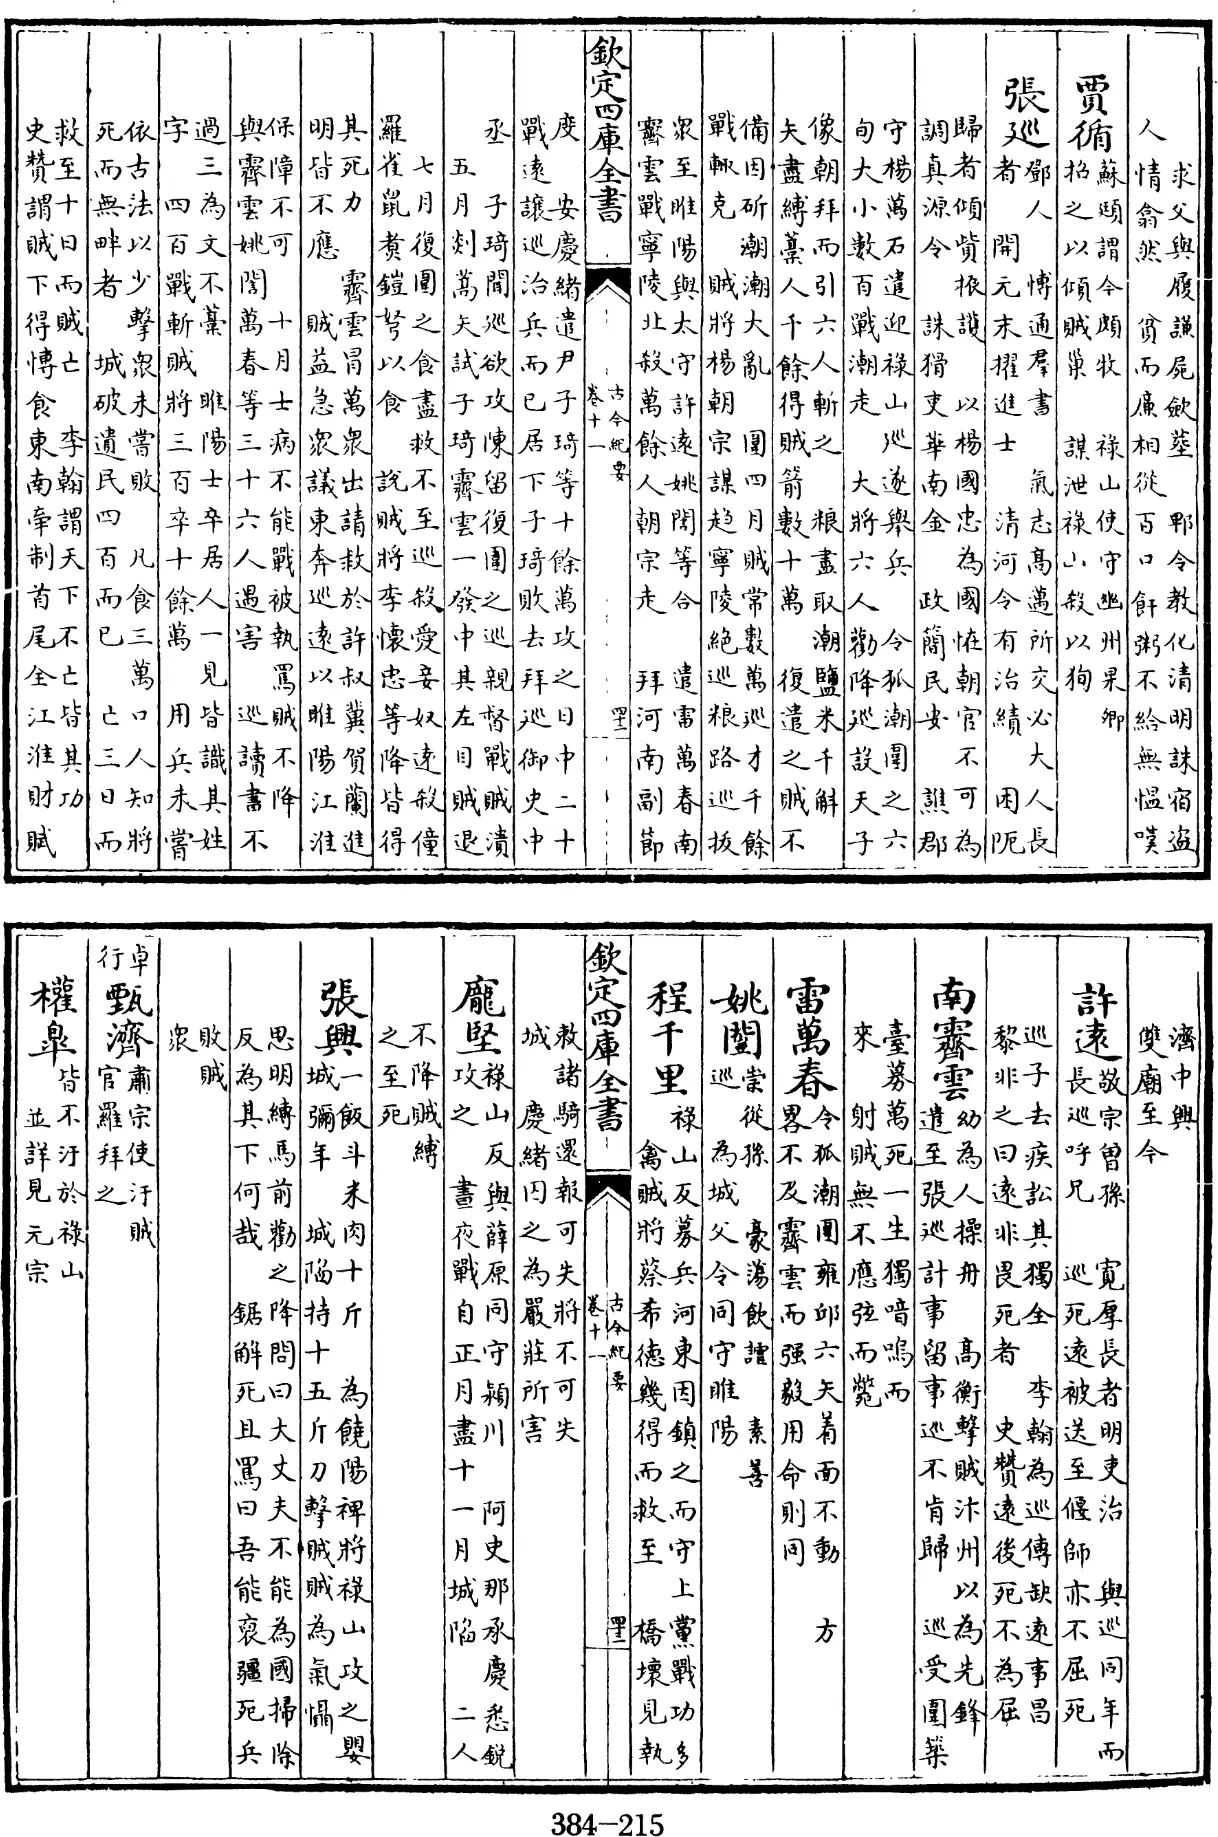 求父與履謙屍斂塟　郫令教化清明誅宿盗
人情翕然　貧而廉相從百口飦粥不給無愠嘆
賈循
蘇頲謂今頗牧　祿山使守幽州杲卿
招之以傾賊巢　謀泄祿山殺以狥
張廵
鄧人　愽通羣書　氣志高邁所交必大人長
者　開元末擢進士　清河令有治績　困阨
歸者傾貲振護　以楊國忠為國恠朝官不可為
調真源令　誅猾吏華南金　政簡民安　譙郡
守楊萬石遣迎祿山廵遂舉兵　令狐潮圍之六
旬大小數百戰潮走　大將六人勸降巡設天子
像朝拜而引六人斬之　粮盡取潮鹽米千斛
矢盡縛藁人千餘得賊箭數十萬　復遣之賊不
備因斫潮潮大亂　圍四月賊常數萬巡才千餘
戰輙克　賊將楊朝宗謀趋寧陵絶巡粮路巡拔
衆至睢陽與太守許遠姚誾等合　遣雷萬春南
霽雲戰寧陵北殺萬餘人朝宗走　拜河南副節
欽定四庫全書
古今紀要
卷十一
四十二
度　安慶緒遣尹子琦等十餘萬攻之日中二十
戰遠讓巡治兵而已居下子琦敗去拜巡御史中
丞　子琦聞巡欲攻陳留復圍之巡親督戰賊潰
五月剡蒿矢試子琦霽雲一發中其左目賊退
七月復圍之食盡救不至巡殺愛妾奴遠殺僮
羅雀鼠煑鎧弩以食　說賊將李懷忠等降皆得
其死力　霽雲冒萬衆出請救於許叔冀賀蘭進
明皆不應　賊益急衆議東奔巡遠以睢陽江淮
保障不可　十月士病不能戰被執罵賊不降
與霽雲姚誾萬春等三十六人遇害　巡讀書不
過三為文不藁　睢陽士卒居人一見皆識其姓
字　四百戰斬賊將三百卒十餘萬　用兵未嘗
依古法以少擊衆未嘗敗　凡食三萬口人知將
死而無畔者　城破遺民四百而已　亡三日而
救至十日而賊亡　李翰謂天下不亡皆其功
史贊謂賊下得愽食東南牽制首尾全江淮財賦
濟中興
雙廟至今
許遠
敬宗曾孫　寛厚長者明吏治　與巡同年而
長巡呼兄　巡死遠被送至偃師亦不屈死
巡子去疾訟其獨全　李翰為巡傳缺遠事昌
黎非之曰遠非畏死者　史贊遠後死不為屈
南霽雲
幼為人操舟　高衡擊賊汴州以為先鋒
遣至張巡計事留事巡不肯歸　巡受圍築
臺募萬死一生獨喑嗚而
來　射賊無不應弦而斃
雷萬春
令狐潮圍雍邱六矢着面不動　方
畧不及霽雲而强毅用命則同
姚誾
崇從孫　豪蕩飲謔　素善
巡　為城父令同守睢陽
程千里
祿山反募兵河東因鎮之而守上黨戰功多
禽賊將蔡希德幾得而救至　橋壞見執
欽定四庫全書
古今紀要
卷十一
四十二
敕諸騎還報可失將不可失
城　慶緒囚之為嚴莊所害
龐堅
祿山反與薛原同守潁川　阿史那承慶悉銳
攻之　晝夜戰自正月盡十一月城陷　二人
不降賊縛
之至死
張興
一飯斗米肉十斤　為饒陽裨將祿山攻之嬰
城彌年　城陷持十五斤刀擊賊賊為氣懾
思明縛馬前勸之降問曰大丈夫不能為國掃除
反為其下何哉　鋸解死且罵曰吾能裒疆死兵
敗賊
衆
卓
行
甄濟
肅宗使汙賊
官羅拜之
權臯
皆不汙於祿山
並詳見元宗
384-215